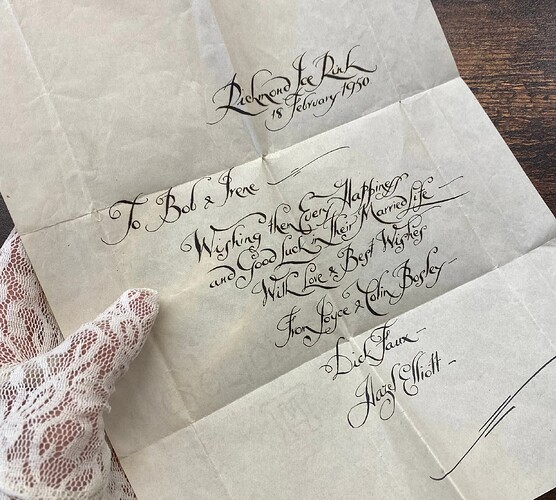 Richmond Ice Rink
18 February 1950
To Bob & Irene
Wishing them Every Happiness
and Good Luck in Their Married Life
With Love & Best Wishes
From Joyce & Colin Bosley
Dick Faux
Hazel Elliott